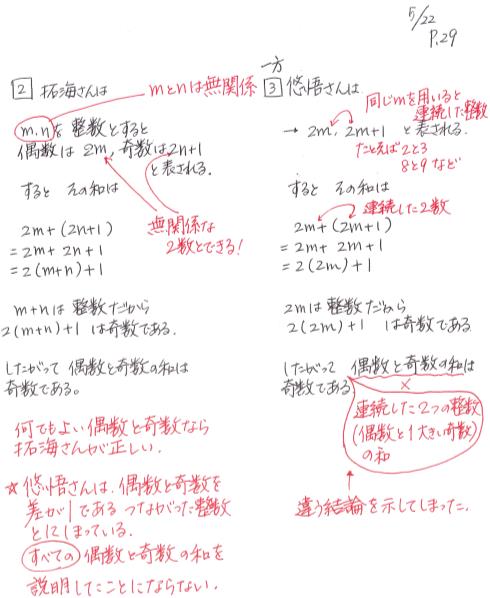 5/22
P.29
2 拓海さんは
mとnは無関係
m,nを整数とすると
偶数は2m,奇数は2n+1
と表される。
すると その和は
2m+(2n+1)
=2m+2n+1
=2(m+n)+1
無関係な
2数とできる!
m+nは整数だから
2(m+n)+1 は奇数である.
したがって 偶数と奇数の和は
奇数である。
何でもよい偶数と奇数なら
拓海さんが正しい.
☆悠悟さんは、偶数と奇数を
差が1である つながった整数
としてしまっている.
すべての 偶数と奇数の和を
説明したことにならない.
一方
3 悠悟さんは
同じmを用いると
連続した整数
→ 2m, 2m+1 と表される.
たとえば2と3
8と9など
すると その和は
連続した2数
2m+(2m+1)
=2m+2m+1
=2(2m)+1
2mは整数だから
2(2m)+1 は奇数である
したがって 偶数と奇数の和は
奇数である
×
連続した2つの整数
(偶数と1大きい奇数)
の和
違う結論を示してしまった.